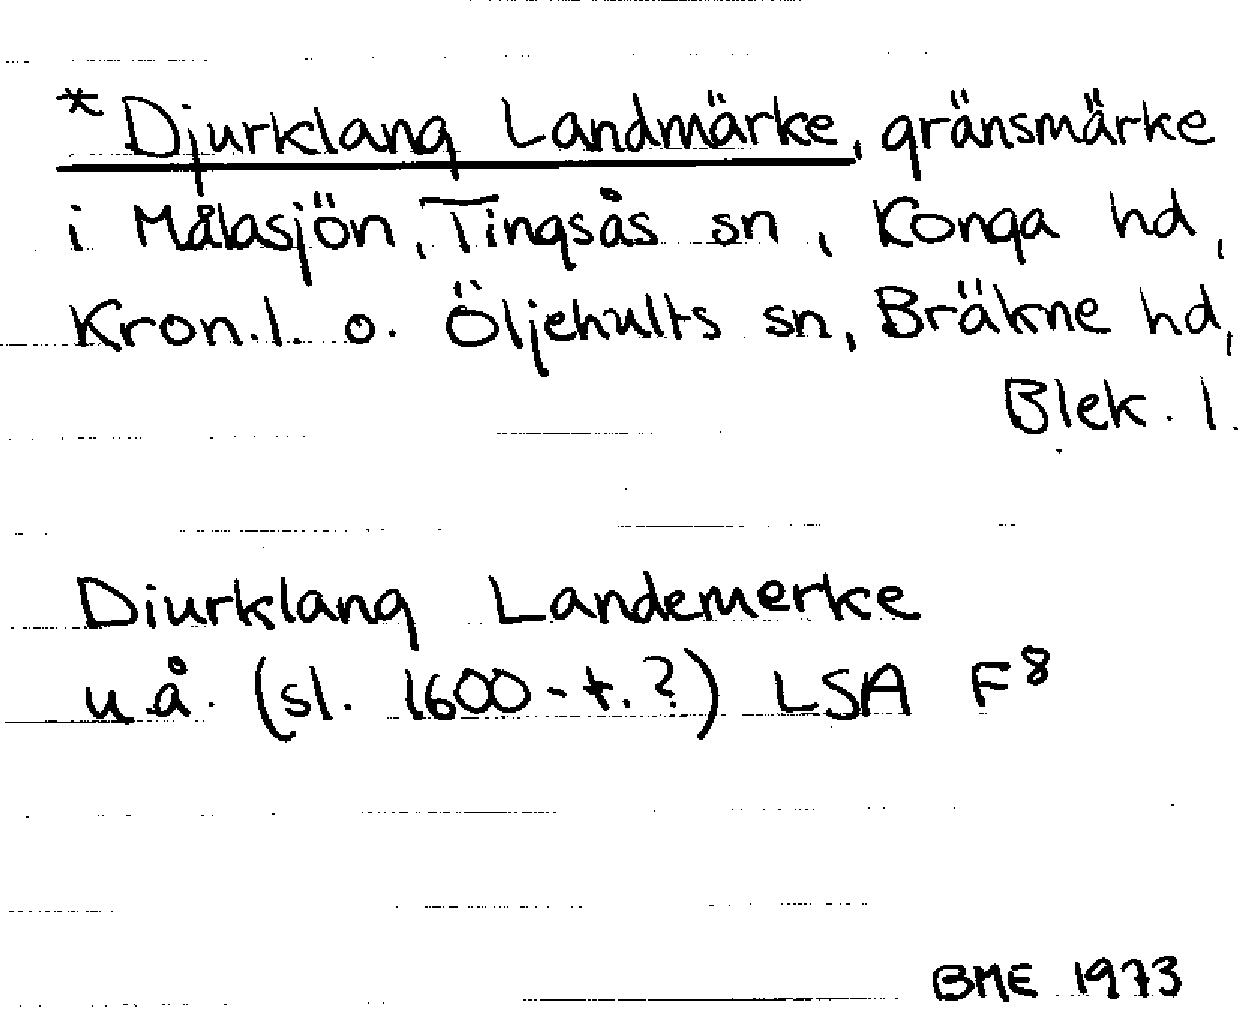 * Djurklang Landmärke, gränsmärke
i Målasjön, Tingsås sn, Konga hd,
Kron.l. o. Öljehults sn, Bräkne hd,
Blek. l.
Diurklang Landemerke
u.å. (sl. 1600-t.?) LSA F⁸
BME 1973